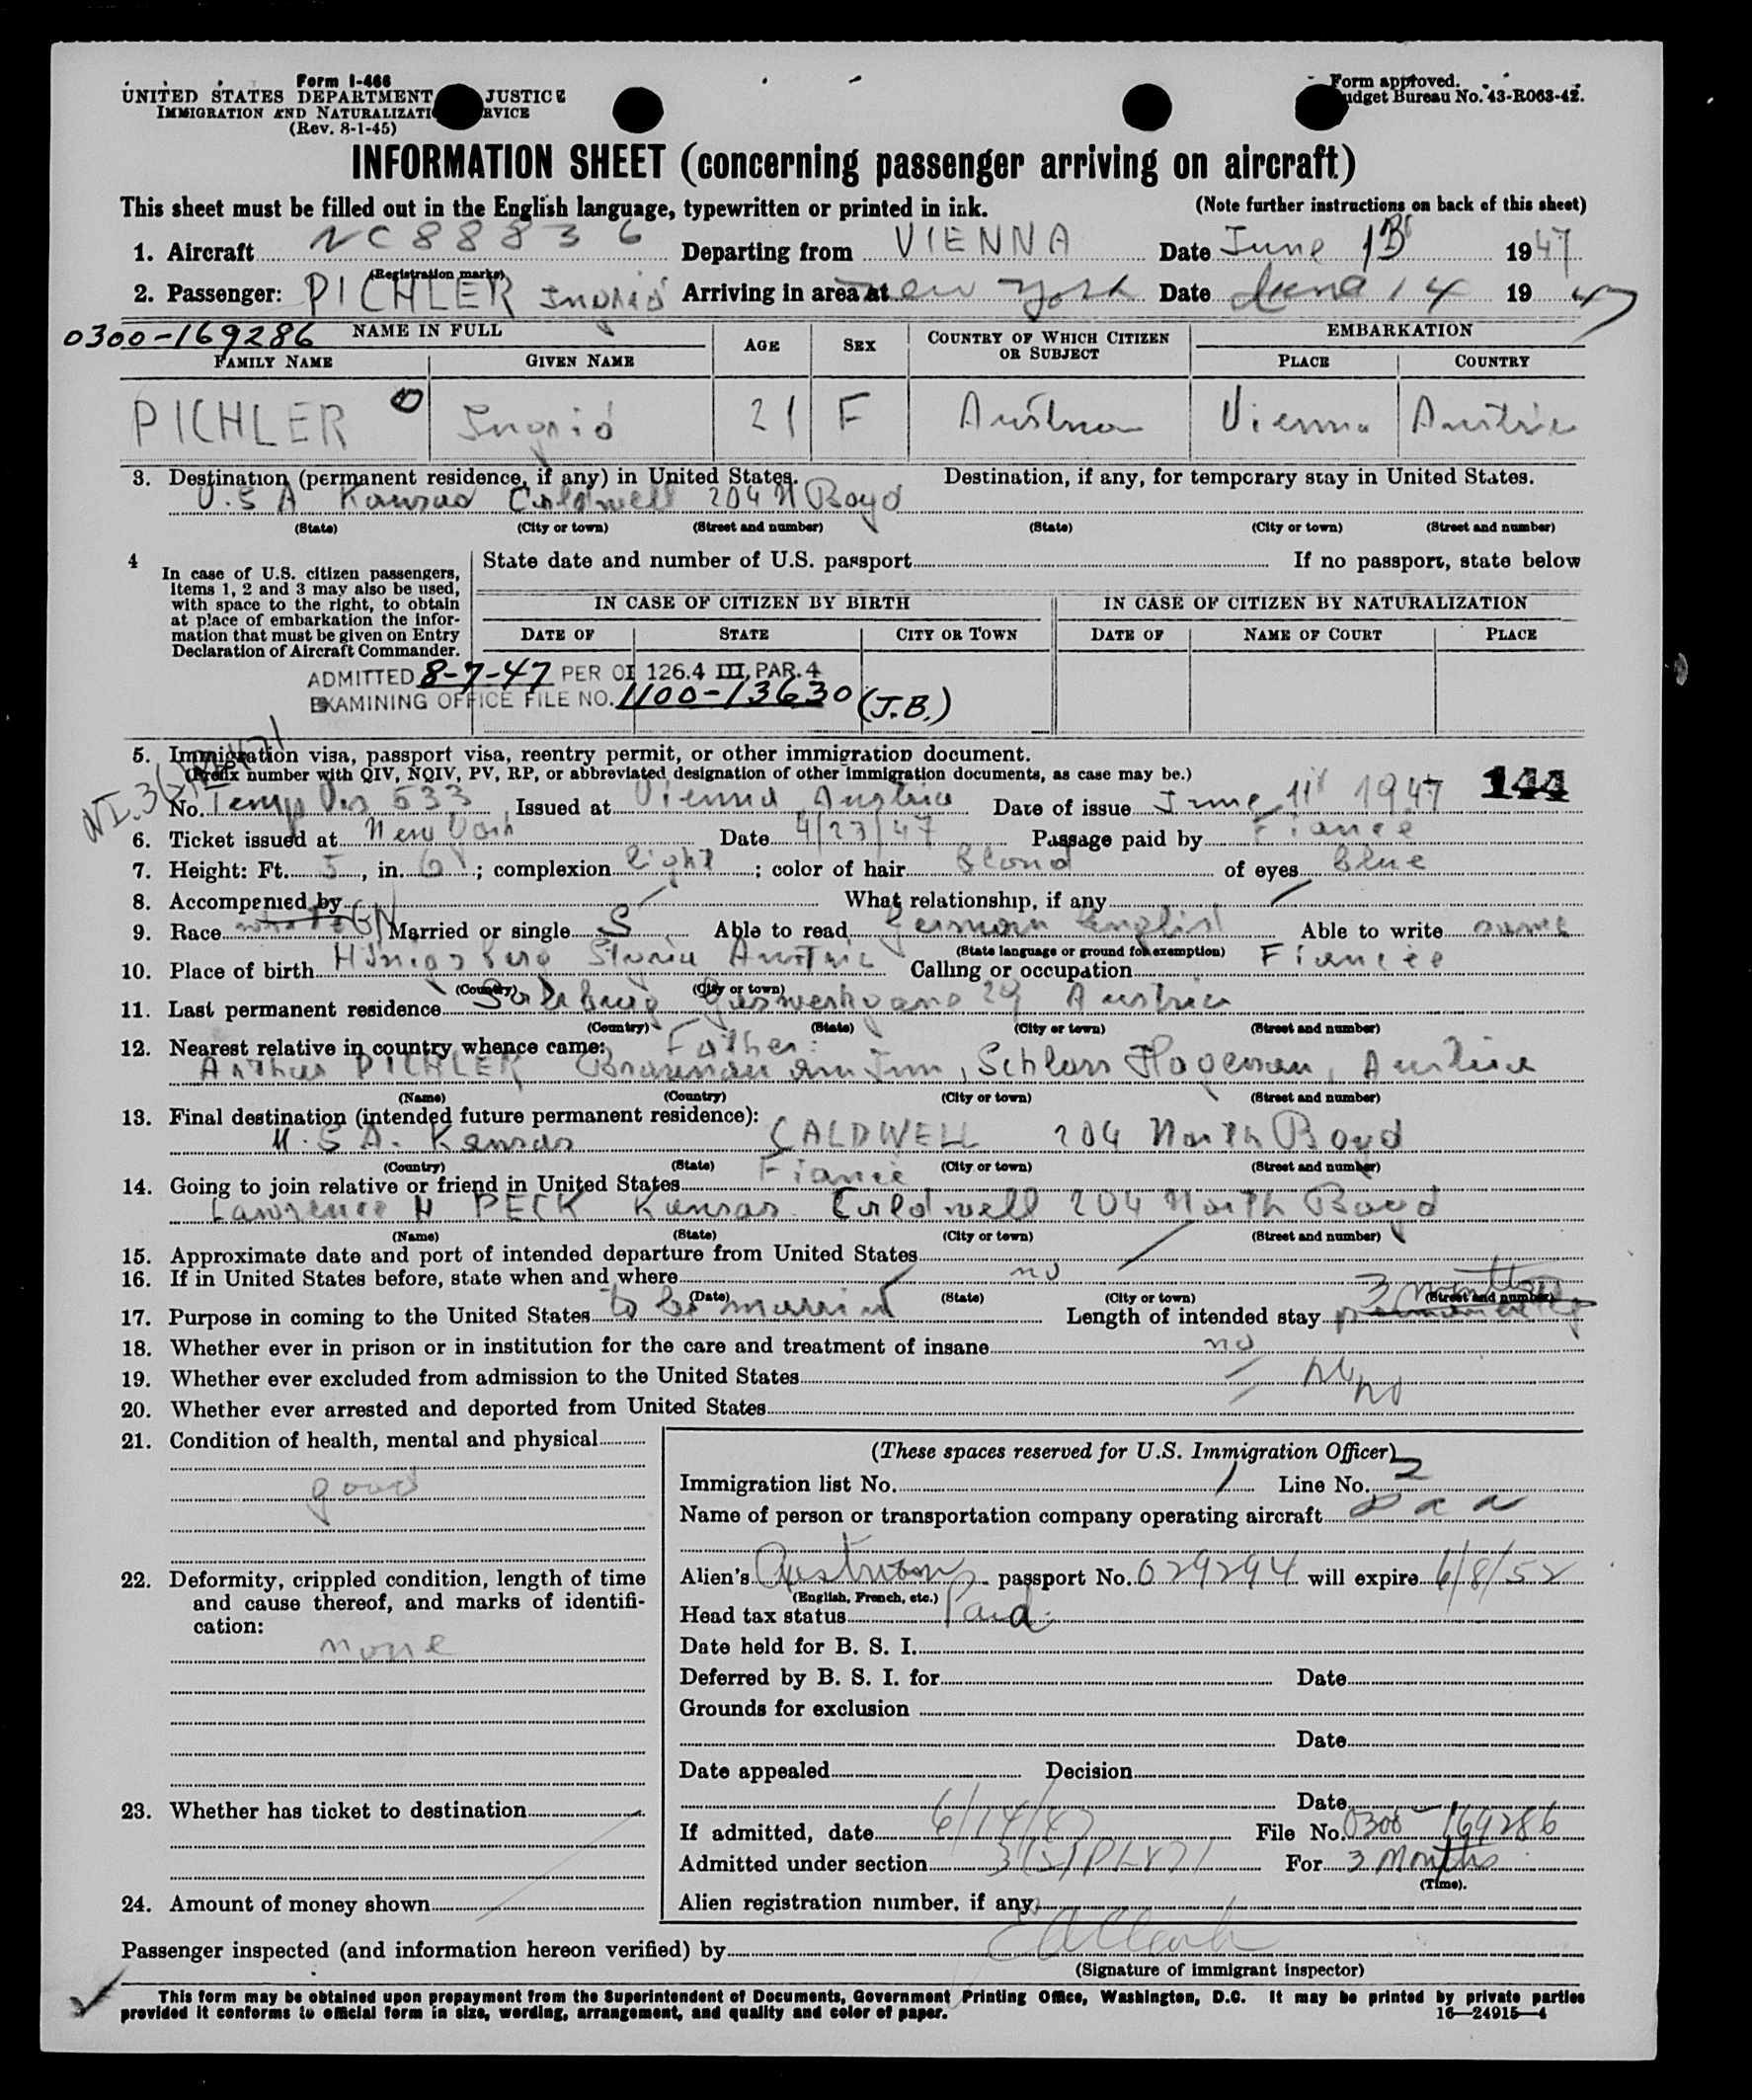 Form I-466
UNITED STATES DEPARTMENT JUSTICE
IMMIGRATION AND NATURALIZATI RVICE
(Rev. 8-1-45)
Form approved.
udget Bureau No. 43-R063-42.
INFORMATION SHEET (concerning passenger arriving on aircraft)
This sheet must be filled out in the English language, typewritten or printed in ink. (Note further instructions on back of this sheet)
1. Aircraft NC88836 Departing from VIENNA Date June 13 1947
(Registration marks)
2. Passenger: PICHLER Ingrid Arriving in area at New York Date June 14 1947
0300-169286 NAME IN FULL AGE SEX COUNTRY OF WHICH CITIZEN OR SUBJECT EMBARKATION
FAMILY NAME GIVEN NAME PLACE COUNTRY
PICHLER Ingrid 21 F Austria Vienna Austria
3. Destination (permanent residence, if any) in United States. Destination, if any, for temporary stay in United States.
U.S A Kansas Caldwell 204 N Boyd
(State) (City or town) (Street and number) (State) (City or town) (Street and number)
4 In case of U.S. citizen passengers, items 1, 2 and 3 may also be used, with space to the right, to obtain at place of embarkation the information that must be given on Entry Declaration of Aircraft Commander.
State date and number of U.S. passport If no passport, state below
IN CASE OF CITIZEN BY BIRTH IN CASE OF CITIZEN BY NATURALIZATION
DATE OF STATE CITY OR TOWN DATE OF NAME OF COURT PLACE
ADMITTED 8-7-47 PER OI 126.4 III, PAR. 4
EXAMINING OFFICE FILE NO. 1100-13630 (J.B.)
5. Immigration visa, passport visa, reentry permit, or other immigration document.
(Prefix number with QIV, NQIV, PV, RP, or abbreviated designation of other immigration documents, as case may be.)
144
No. Temp Vis 533 Issued at Vienna Austria Date of issue June 11 1947
6. Ticket issued at New York Date 4/23/47 Passage paid by Fiancé
7. Height: Ft. 5, in. 6; complexion light; color of hair Blond of eyes blue
8. Accompanied by What relationship, if any
9. Race white GN Married or single S Able to read German English Able to write same
(State language or ground for exemption)
10. Place of birth Styria Austria Calling or occupation Fiancée
(Country) (City or town)
11. Last permanent residence Salzburg Gaswerkgasse 29 Austria
(Country) (State) (City or town) (Street and number)
12. Nearest relative in country whence came: Father:
Arthur PICHLER Braunau am Inn, Schloss Hagenau, Austria
(Name) (Country) (City or town) (Street and number)
13. Final destination (intended future permanent residence):
U.S.A. Kansas CALDWELL 204 North Boyd
(Country) (State) (City or town) (Street and number)
14. Going to join relative or friend in United States Fiancé
Lawrence H PECK Kansas Caldwell 204 North Boyd
(Name) (State) (City or town) (Street and number)
15. Approximate date and port of intended departure from United States
16. If in United States before, state when and where no
(Date) (State) (City or town) (Street and number)
17. Purpose in coming to the United States to be married Length of intended stay permanently 3 months
18. Whether ever in prison or in institution for the care and treatment of insane no
19. Whether ever excluded from admission to the United States no
20. Whether ever arrested and deported from United States no
21. Condition of health, mental and physical
good
22. Deformity, crippled condition, length of time and cause thereof, and marks of identification:
none
23. Whether has ticket to destination
24. Amount of money shown
(These spaces reserved for U.S. Immigration Officer)
Immigration list No. 1 Line No. 2
Name of person or transportation company operating aircraft Paa
Alien's Austrian passport No. 029294 will expire 6/8/52
(English, French, etc.)
Head tax status Paid
Date held for B. S. I.
Deferred by B. S. I. for Date
Grounds for exclusion
Date
Date appealed Decision
Date
If admitted, date 6/14/47 File No. 0300-169286
Admitted under section 3(2)PL471 For 3 Months
(Time).
Alien registration number, if any
Passenger inspected (and information hereon verified) by
(Signature of immigrant inspector)
This form may be obtained upon prepayment from the Superintendent of Documents, Government Printing Office, Washington, D.C. It may be printed by private parties
provided it conforms to official form in size, wording, arrangement, and quality and color of paper. 16—24915-4